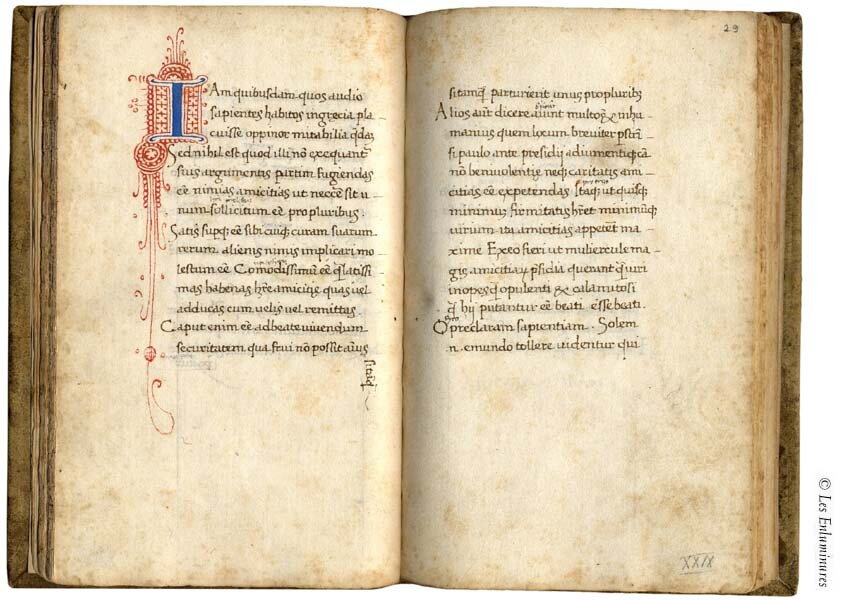 IAm quibusdam quos audio
sapientes habitos ingrecia pla–
cuisse oppinor mirabilia qdaʒ
Sed nihil est quod illi nō exequant᷑
suis argumentis partim fugiendas
eē nimias amicitias ut neccēe sit u–
num sollicitum eē pro pluribus.
Satis supqʒ eē sibi cuiqʒ curam suarum
rerum. alienis nimis implicari mo–
lestum eē Comodissimū eē q̄ latissi–
mas habenas hr̄e amicitie quas vel
adducas cum velis vel remittas.
Caput enim eē adbeate vivendum
securitatem qua frui nō possit aīus
29
sitamq̄ parturierit unus propluribꝫ
Alios aūt dicere aiunt multo &
manius quem locum breviter
si paulo ante presidij adiumentiqʒ cā
nō benivolentie neqʒ caritatis ami–
citias eē expetendas Itaqʒ ut quisqʒ
minimum firmitatis hr̄et minimūqʒ
virium ita amicitias appetere ma–
xime Exeo fieri ut muliercule ma–
gis amicitiaꝝ psidia querant q̄ viri
inopes q̄ opulenti & calamitosi
q̄ hij putantur eē beati
O preclaram sapientiam. Solem
n. emundo tollere videntur qui
XXIX
© Les Enluminures